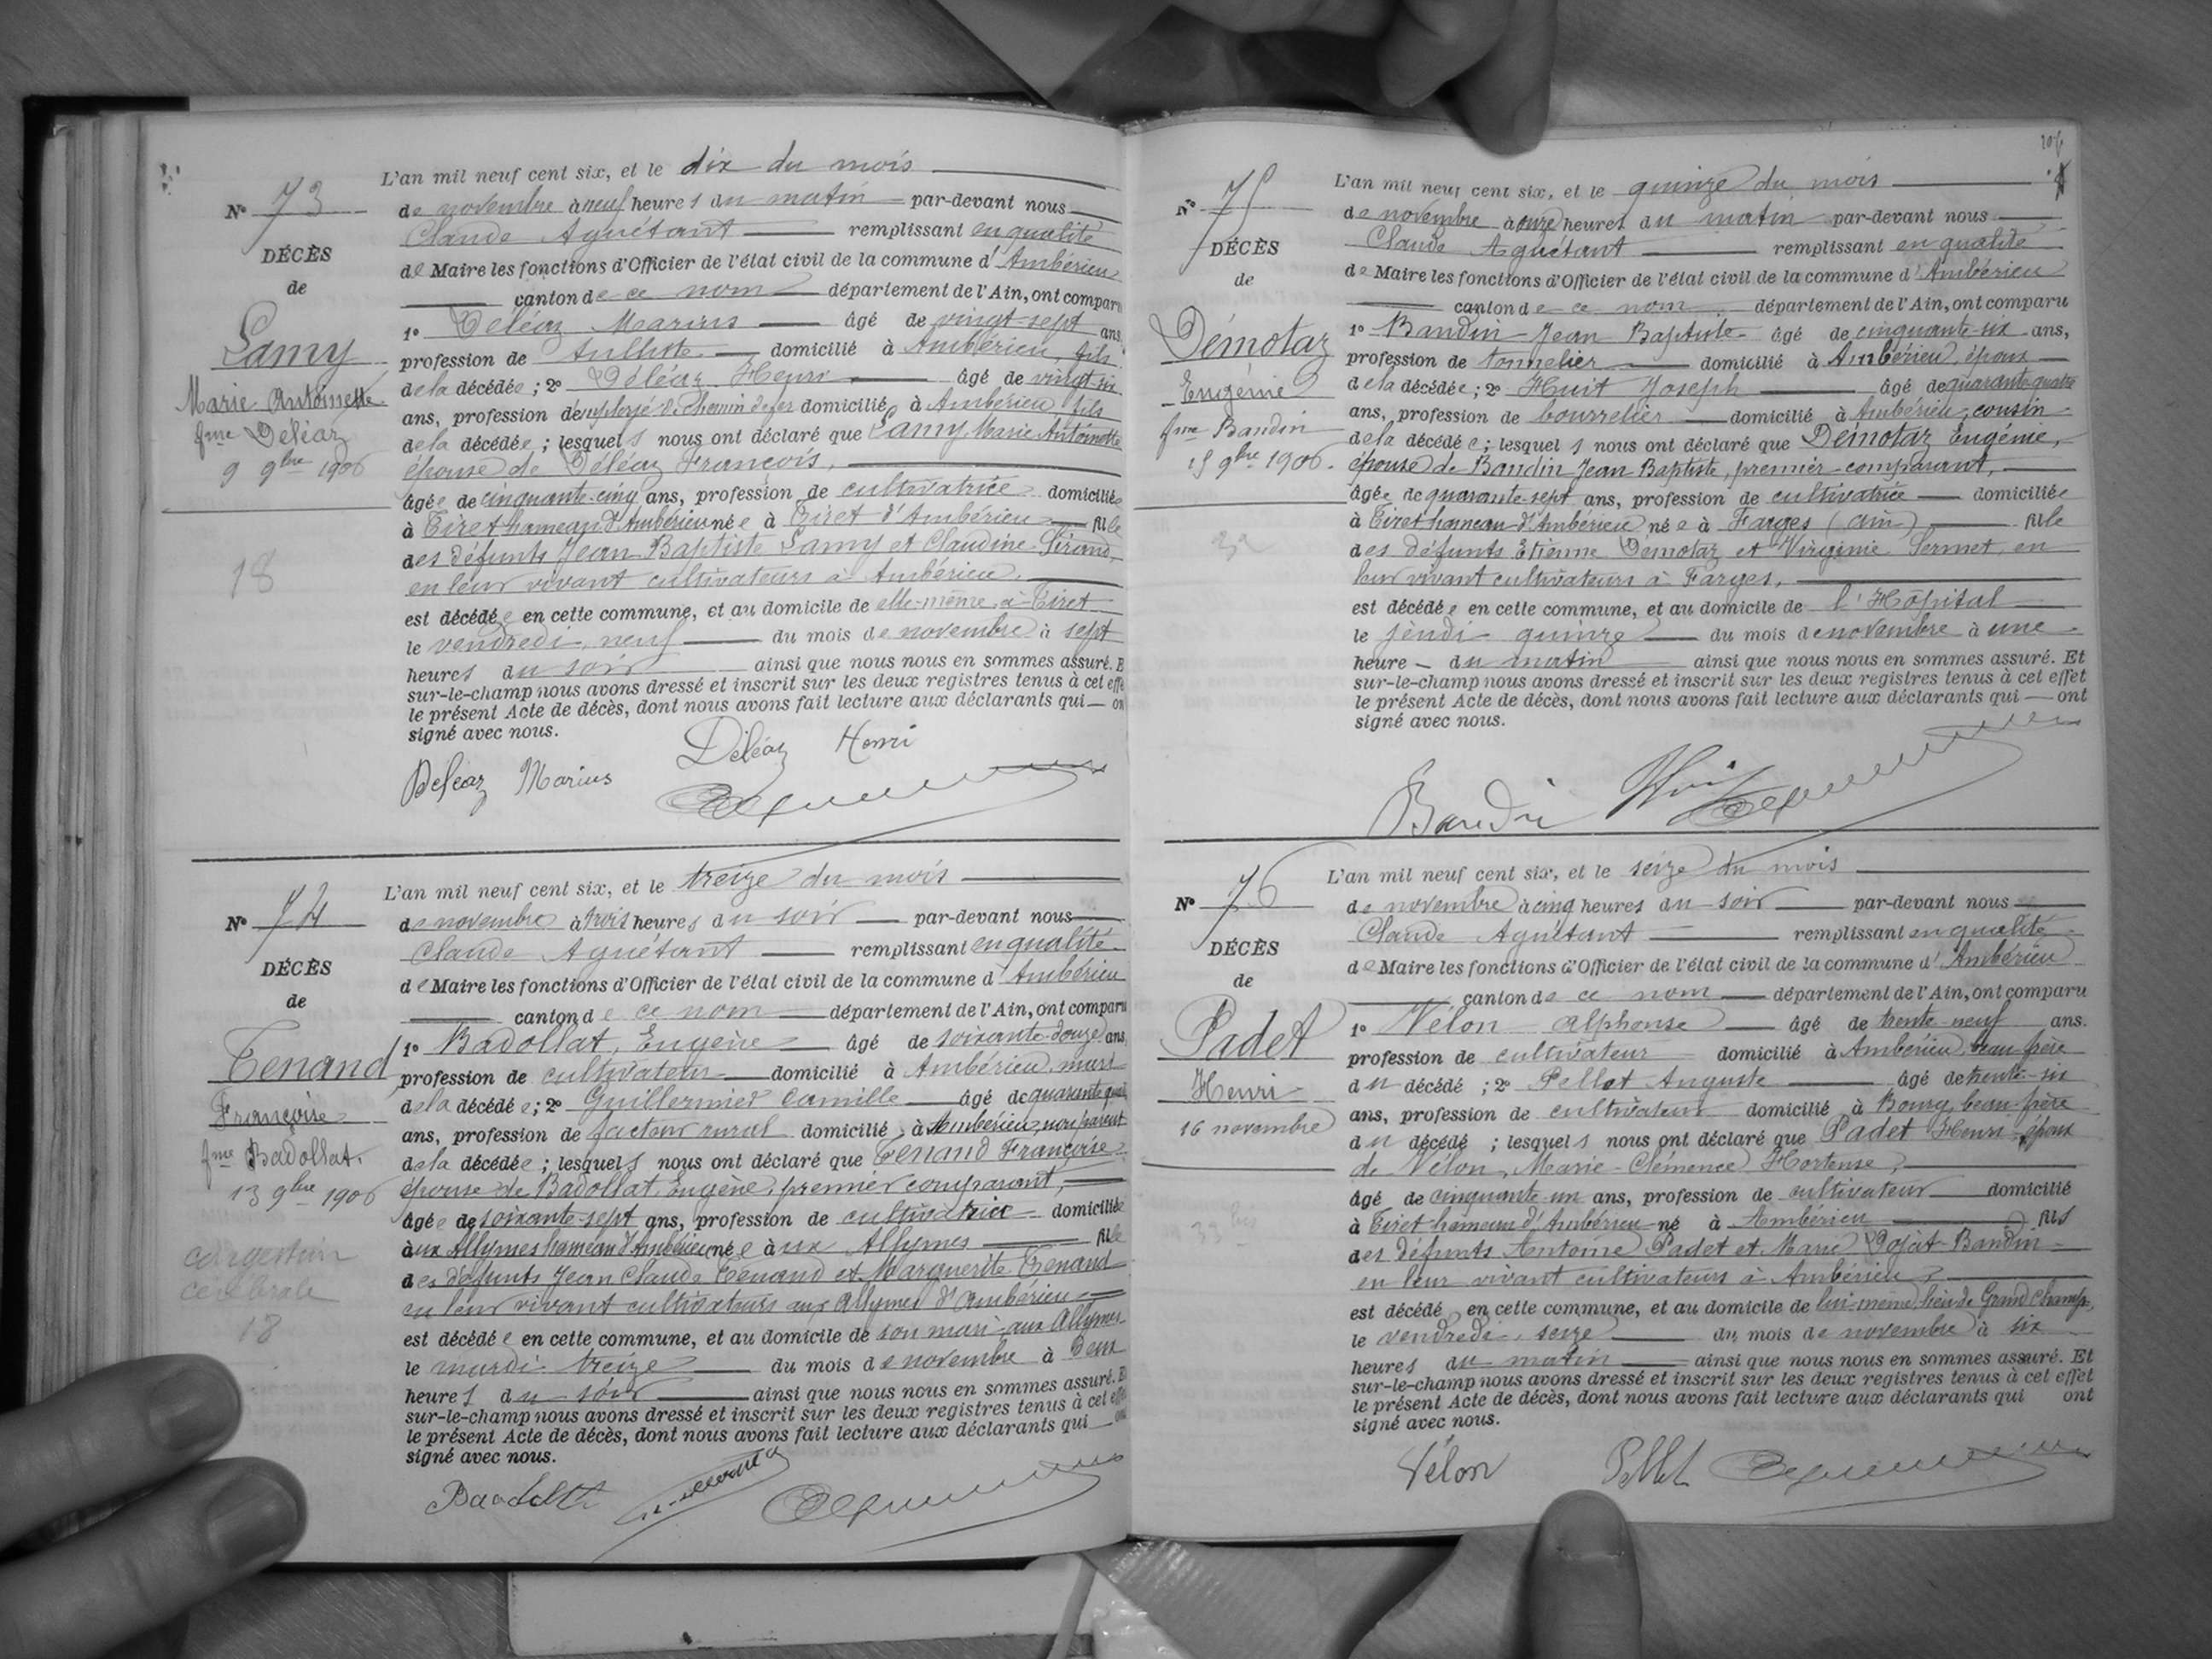 L'an mil neuf cent six, et le dix du mois
N° 73
de novembre à neuf heures du matin par-devant nous
Claude Aguétant remplissant en qualité
DÉCÈS
de Maire les fonctions d'Officier de l'état civil de la commune d'Ambérieu
de
canton de ce nom département de l'Ain, ont comparu
Lamy
1° Déléaz Marius âgé de vingt-sept ans,
profession de domicilié à Ambérieu, fils
Marie Antoinette
de la décédée ; 2° Déléaz Henri âgé de vingt-six
ans, profession d'employé de chemin de fer domicilié à Ambérieu, fils
fme Deléaz
de la décédée ; lesquels nous ont déclaré que Lamy Marie Antoinette
9 9bre 1906
épouse de Déléaz François,
âgée de cinquante-cinq ans, profession de cultivatrice domiciliée
à Tiret hameau d'Ambérieu née à Tiret d'Ambérieu fille
des défunts Jean Baptiste Lamy et Claudine Sirand,
18
en leur vivant cultivateurs à Ambérieu.
est décédée en cette commune, et au domicile de elle-même, à Tiret
le vendredi neuf du mois de novembre à sept
heures du soir ainsi que nous nous en sommes assuré. E
sur-le-champ nous avons dressé et inscrit sur les deux registres tenus à cet effe
le présent Acte de décès, dont nous avons fait lecture aux déclarants qui on
signé avec nous.
Déléaz Henri
Deleaz Marius
L'an mil neuf cent six, et le treize du mois
N° 74
de novembre à trois heures du soir par-devant nous
Claude Aguétant remplissant en qualité
DÉCÈS
de Maire les fonctions d'Officier de l'état civil de la commune d'Ambérieu
de
canton de ce nom département de l'Ain, ont comparu
Tenand
1° Badollat, Eugène âgé de soixante-douze ans,
profession de cultivateur domicilié à Ambérieu, mari
Françoise
de la décédée ; 2° Guillermier Camille âgé de quarante
ans, profession de facteur rural domicilié à Ambérieu, non parent
fme Badollat.
de la décédée ; lesquels nous ont déclaré que Tenand Françoise
13 9bre 1906
épouse de Badollat, Eugène, premier comparant,
âgée de soixante-sept ans, profession de cultivatrice domiciliée
aux Allymes hameau d'Ambérieu née aux Allymes fille
congestion
des défunts Jean Claude Tenand et Marguerite Tenand
cérébrale
en leur vivant cultivateurs aux Allymes d'Ambérieu
18
est décédée en cette commune, et au domicile de son mari aux Allymes
le mardi treize du mois de novembre à deux
heures du soir ainsi que nous nous en sommes assuré. E
sur-le-champ nous avons dressé et inscrit sur les deux registres tenus à cet effe
le présent Acte de décès, dont nous avons fait lecture aux déclarants qui
signé avec nous.
L'an mil neuf cent six, et le quinze du mois
N° 75
de novembre à onze heures du matin par-devant nous
Claude Aguétant remplissant en qualité
DÉCÈS
de Maire les fonctions d'Officier de l'état civil de la commune d'Ambérieu
de
canton de ce nom département de l'Ain, ont comparu
Démotaz
1° Baudin Jean Baptiste âgé de cinquante-six ans,
profession de tonnelier domicilié à Ambérieu, époux
Eugénie
de la décédée ; 2° Huit Joseph âgé de quarante-quatre
ans, profession de bourrelier domicilié à Ambérieu, cousin
fme Baudin
de la décédée ; lesquels nous ont déclaré que Démotaz Eugénie,
15 9bre 1906.
épouse de Baudin Jean Baptiste, premier comparant,
âgée de quarante-sept ans, profession de cultivatrice domiciliée
à Tiret hameau d'Ambérieu née à Farges (Ain) fille
des défunts Etienne Démotaz et Virginie Sermet, en
leur vivant cultivateurs à Farges,
est décédée en cette commune, et au domicile de l'Hôpital
le jeudi quinze du mois de novembre à une
heure du matin ainsi que nous nous en sommes assuré. Et
sur-le-champ nous avons dressé et inscrit sur les deux registres tenus à cet effet
le présent Acte de décès, dont nous avons fait lecture aux déclarants qui ont
signé avec nous.
Baudin
L'an mil neuf cent six, et le seize du mois
N° 76
de novembre à cinq heures du soir par-devant nous
Claude Aguétant remplissant en qualité
DÉCÈS
de Maire les fonctions d'Officier de l'état civil de la commune d'Ambérieu
de
canton de ce nom département de l'Ain, ont comparu
Padet
1° Vélon Alphonse âgé de trente-neuf ans.
profession de cultivateur domicilié à Ambérieu, beau-frère
Henri
du décédé ; 2° Pellet Auguste âgé de trente-six
16 novembre
ans, profession de cultivateur domicilié à Bourg, beau-frère
du décédé ; lesquels nous ont déclaré que Padet Henri époux
de Vélon, Marie-Clémence Hortense,
âgé de cinquante-un ans, profession de cultivateur domicilié
à Tiret hameau d'Ambérieu né à Ambérieu fils
des défunts Antoine Padet et Marie Baudin
en leur vivant cultivateurs à Ambérieu
est décédé en cette commune, et au domicile de lui-même, lieu de Grand Champ,
le vendredi seize du mois de novembre à six
heures du matin ainsi que nous nous en sommes assuré. Et
sur-le-champ nous avons dressé et inscrit sur les deux registres tenus à cet effet
le présent Acte de décès, dont nous avons fait lecture aux déclarants qui ont
signé avec nous.
Vélon Pellet